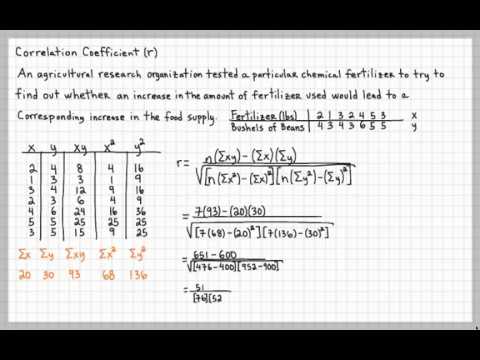 Correlation Coefficient (r)
An agricultural research organization tested a particular chemical fertilizer to try to
find out whether an increase in the amount of fertilizer used would lead to a
Corresponding increase in the food supply.
Fertilizer (lbs) | 2 | 1 | 3 | 2 | 4 | 5 | 3 x
Bushels of Beans | 4 | 3 | 4 | 3 | 6 | 5 | 5 y
x | y | xy | x² | y²
2 | 4 | 8 | 4 | 16
1 | 3 | 3 | 1 | 9
3 | 4 | 12 | 9 | 16
2 | 3 | 6 | 4 | 9
4 | 6 | 24 | 16 | 36
5 | 5 | 25 | 25 | 25
3 | 5 | 15 | 9 | 25
Σx Σy Σxy Σx² Σy²
20 30 93 68 136
r = n(Σxy) - (Σx)(Σy)
√[n(Σx²) - (Σx)²][n(Σy²) - (Σy)²]
= 7(93) - (20)(30)
√[7(68) - (20)²][7(136) - (30)²]
= 651 - 600
√[476 - 400][952 - 900]
= 51
[76][52